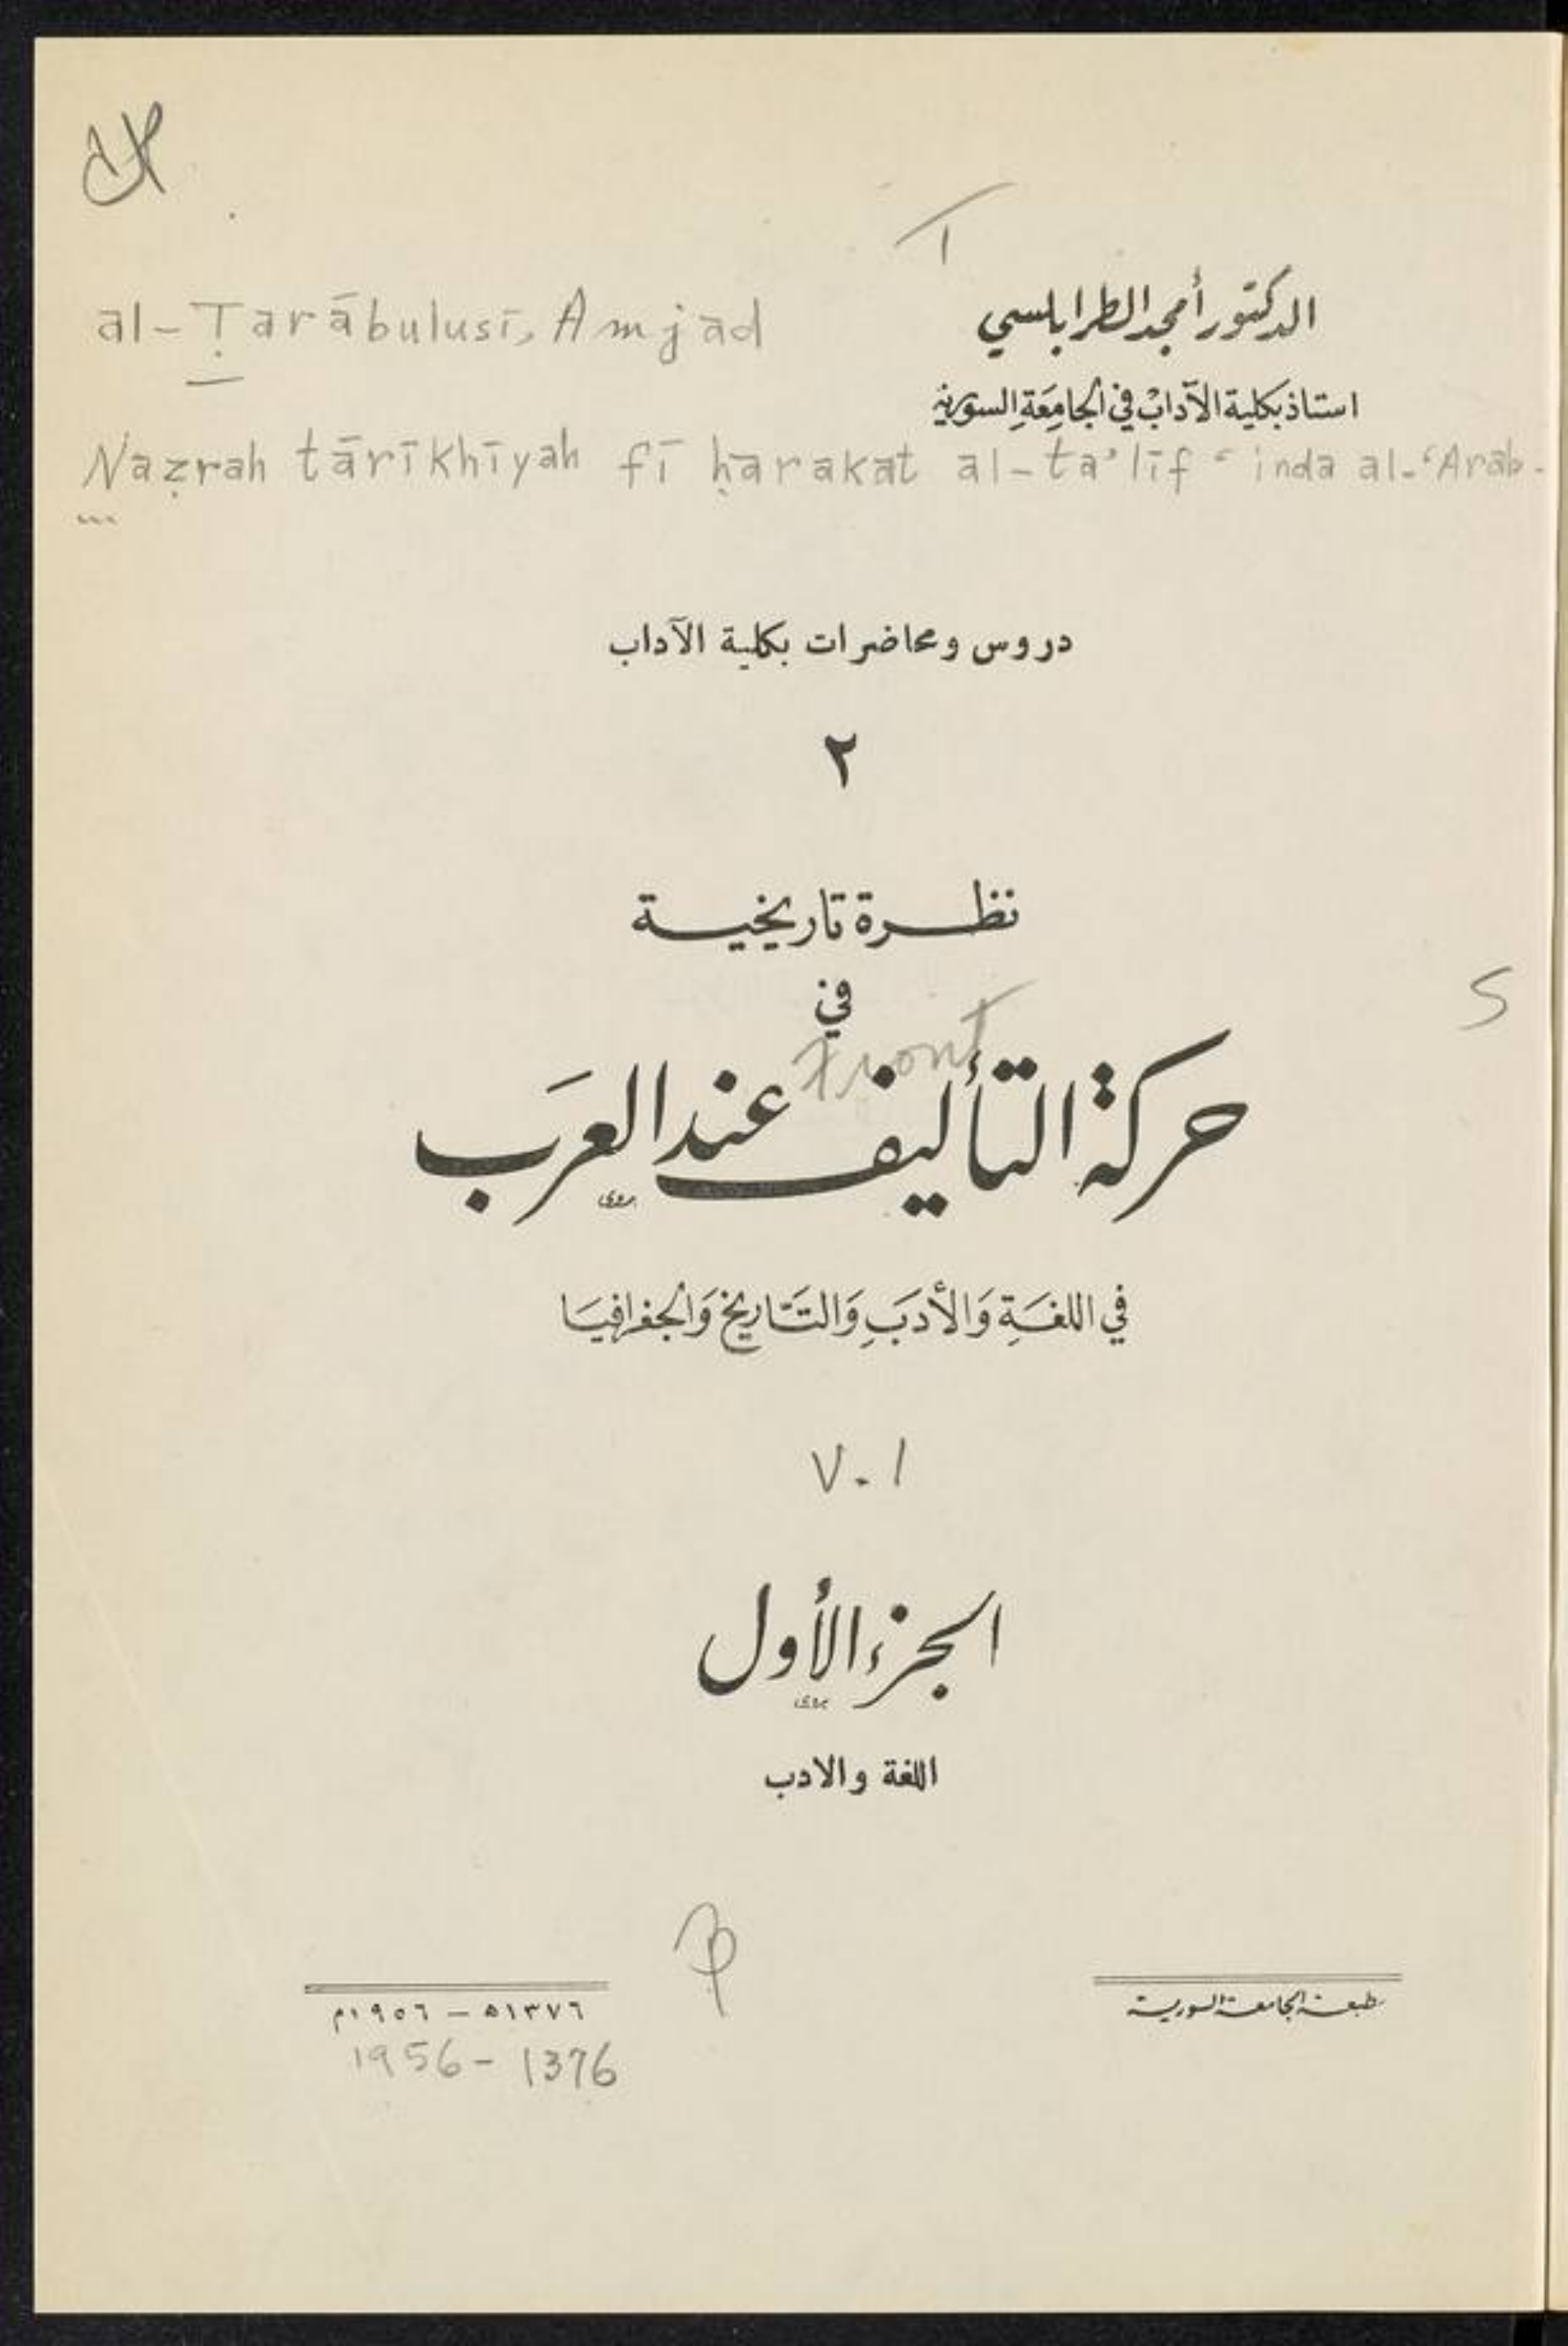 الدكتور أمجد الطرابلسي
al-Ṭarābulusī, Amjad
استاذ بكلية الآداب في الجامعة السورية
Naẓrah tārīkhīyah fī ḥarakat al-ta'līf ʿinda al-ʿArab.
...
دروس ومحاضرات بكلية الآداب
٢
نظرة تاريخية
في
S
Front
حركة التأليف عند العرب
في اللغَةِ وَالأدَبِ وَالتَّاريخ وَالجغرافيَا
V.1
الجزء الأول
اللغة والادب
طبعة الجامعة السورية
١٣٧٦ه – ١٩٥٦م
1956 - 1376